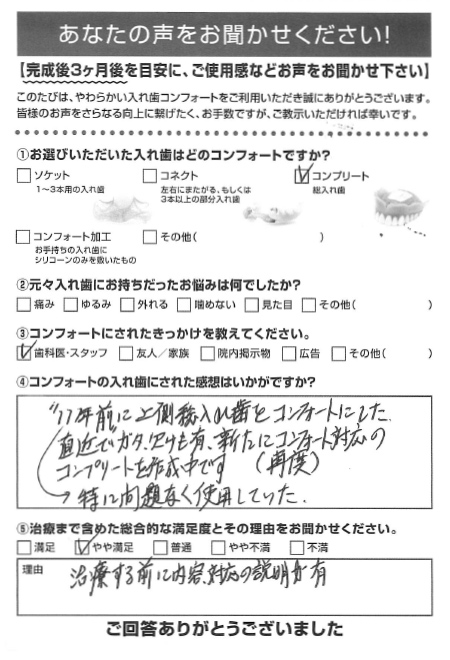 あなたの声をお聞かせください!
【完成後3ヶ月後を目安に、ご使用感などお声をお聞かせ下さい】
このたびは、やわらかい入れ歯コンフォートをご利用いただき誠にありがとうございます。
皆様のお声をさらなる向上に繋げたく、お手数ですが、ご教示いただければ幸いです。
①お選びいただいた入れ歯はどのコンフォートですか?
□ソケット □コネクト ☑コンプリート
1〜3本用の入れ歯 左右にまたがる、もしくは 総入れ歯
3本以上の部分入れ歯
□コンフォート加工 □その他( )
お手持ちの入れ歯に
シリコーンのみを敷いたもの
②元々入れ歯にお持ちだったお悩みは何でしたか?
□痛み □ゆるみ □外れる □噛めない □見た目 □その他( )
③コンフォートにされたきっかけを教えてください。
☑歯科医・スタッフ □友人/家族 □院内掲示物 □広告 □その他( )
④コンフォートの入れ歯にされた感想はいかがですか?
11年前に上側 入れ歯をコンフォートにした
直近でガタ も有、新たにコンフォート対応の
コンプリートを作成中です (再度)
→特に問題なく使用していた.
⑤治療まで含めた総合的な満足度とその理由をお聞かせください。
□満足 ☑やや満足 □普通 □やや不満 □不満
理由 治療する前に内容、対応の説明が有
ご回答ありがとうございました